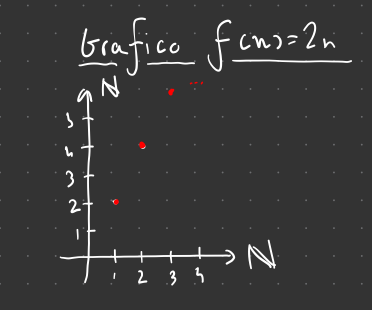 Grafico f(n)=2n
ℕ
...
5
4
3
2
1
ℕ
1 2 3 4